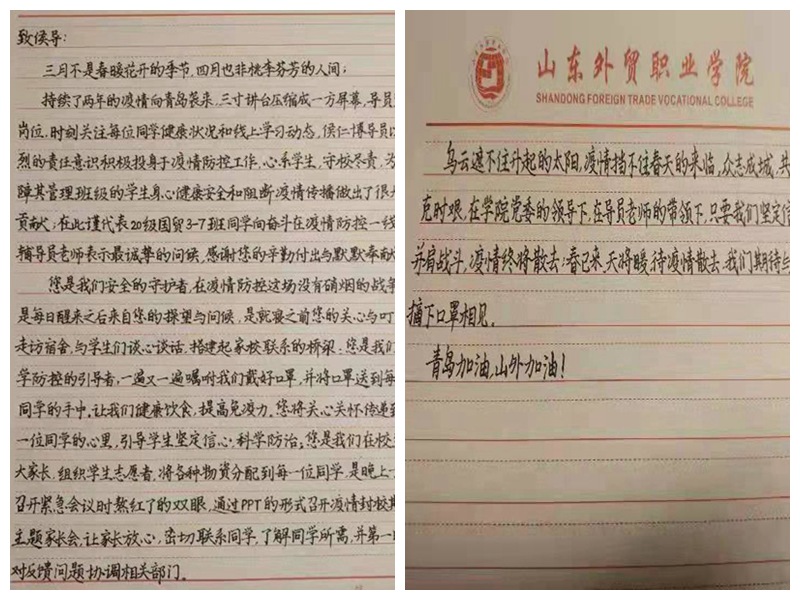 致侯导:
三月不是春暖花开的季节,四月也非桃李芬芳的人间;
持续了两年的疫情向青岛袭来,三寸讲台压缩成一方屏幕,导员
岗位,时刻关注每位同学健康状况和线上学习动态,侯仁博导员以
烈的责任意识积极投身于疫情防控工作,心系学生,守校尽责,为
障其管理班级的学生身心健康安全和阻断疫情传播做出了很大
贡献;在此谨代表20级国贸3-7班同学向奋斗在疫情防控一线
辅导员老师表示最诚挚的问候,感谢您的辛勤付出与默默奉献
您是我们安全的守护者,在疫情防控这场没有硝烟的战争
是每日醒来之后来自您的探望与问候,是就寝之前您的关心与叮
走访宿舍,与学生们谈心谈话,搭建起家校联系的桥梁;您是我们
学防控的引导者,一遍又一遍嘱咐我们戴好口罩,并将口罩送到每
同学的手中,让我们健康饮食,提高免疫力,您将关心关怀传递到
一位同学的心里,引导学生坚定信心,科学防治;您是我们在校
大家长,组织学生志愿者,将各种物资分配到每一位同学,是晚上
召开紧急会议时熬红了的双眼,通过PPT的形式召开疫情封校期
主题家长会,让家长放心,密切联系同学,了解同学所需,并第一时
对反馈问题协调相关部门。
山东外贸职业学院
SHANDONG FOREIGN TRADE VOCATIONAL COLLEGE
乌云遮不住升起的太阳,疫情挡不住春天的来临,众志成城,共
克时艰,在学院党委的领导下,在导员老师的带领下,只要我们坚定信
并肩战斗,疫情终将散去;春已来,天将暖,待疫情散去,我们期待与
摘下口罩相见。
青岛加油,山外加油!